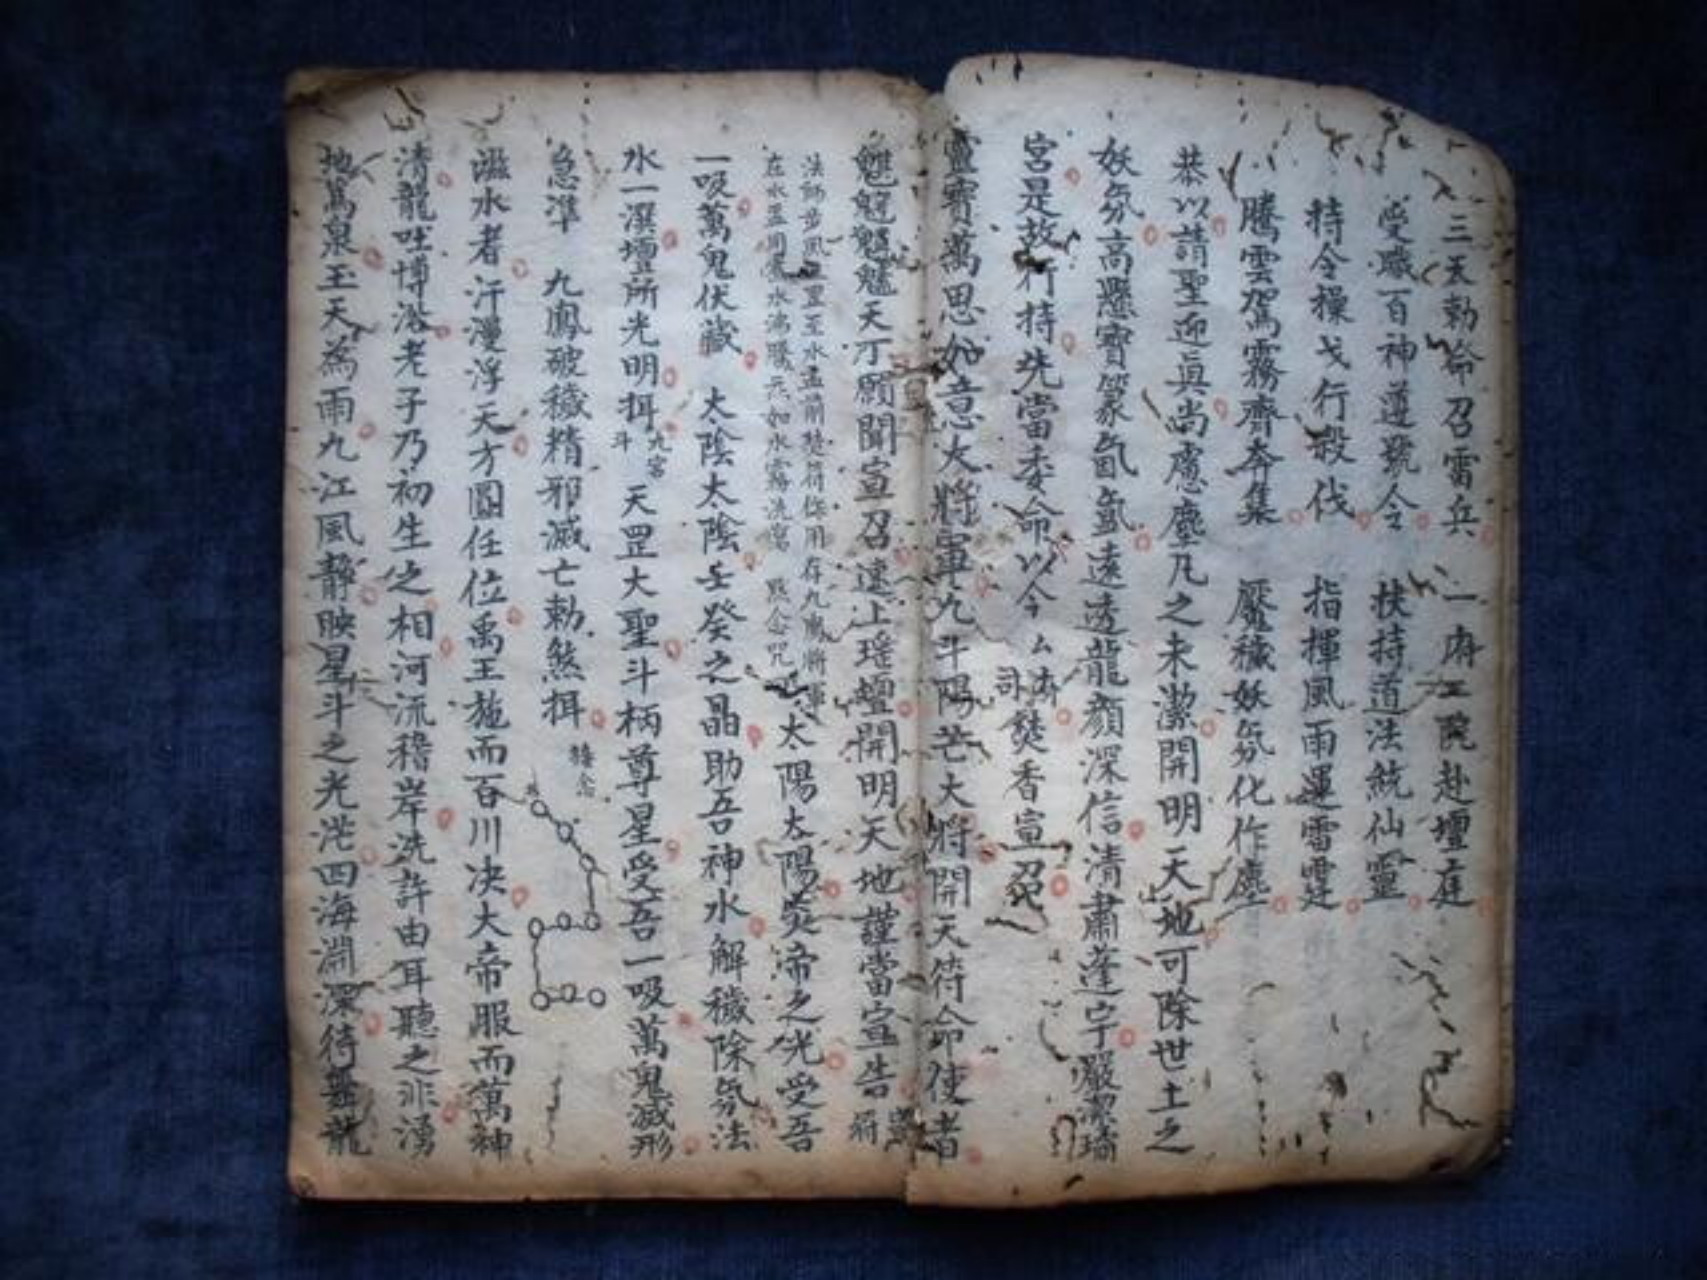 三天勅命召雷兵 一府二院赴壇庭
受職百神遵號令 扶持道法統仙靈
持令操戈行殺伐 指揮風雨運雷霆
騰雲駕霧齊奔集 壓穢妖氛化作塵
恭以請聖迎眞尚慮塵凡之未潔開明天地可除世土之
妖氛高懸寶篆氤氳遠透龍顏深信清肅蓬宇嚴潔璚
宮是故行持先當委命以今焚香宣召
靈寶萬思如意大將軍九斗陽芒大將開天待命使者
天丁願聞宣召遠上瑤壇開明天地謹當宣告
法師步罡至水盂前焚符存九鳳將軍
在水盂用水洗 默念咒
太陽太陽炎帝之光受吾
一吸萬鬼伏藏 太陰太陰壬癸之晶助吾神水解穢除氛法
水一潠壇所光明揖九宮斗 天罡大聖斗柄尊星受吾一吸萬鬼滅形
急準 九鳳破穢精邪滅亡勅煞揖 接念
滋水者汗漫浮天方圓任位禹王施而百川决大帝服而萬神
清龍吐博浴老子乃初生之相河流稽岸洗許由耳聽之非湧
地萬泉玉天為雨九江風靜映星斗之光茫四海淵深待龍